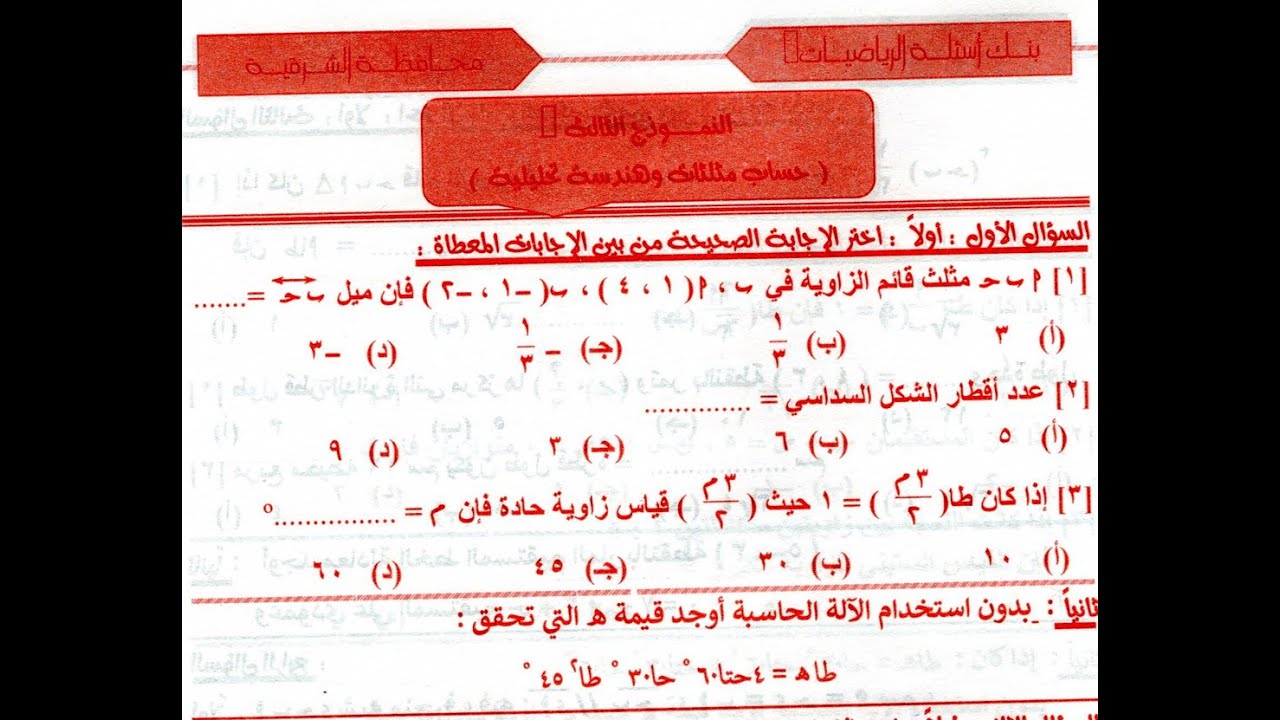 بنك أسئلة الرياضيات
محافظة الشرقية
النموذج الثالث
( حساب مثلثات وهندسة تحليلية )
السؤال الأول : أولاً : اختر الإجابة الصحيحة من بين الإجابات المعطاة :
[١] ‎م ب حـ مثلث قائم الزاوية في ب ، م ( ١ ، ٤ ) ، ب ( -١ ، -٢ ) فإن ميل ب حـ = .......
(أ) ٣ (ب) ١/٣ (جـ) - ١/٣ (د) -٣
[٢] عدد أقطار الشكل السداسي = ..............
(أ) ٥ (ب) ٦ (جـ) ٣ (د) ٩
[٣] إذا كان طا( ٣م/٢ ) = ١ حيث ( ٣م/٢ ) قياس زاوية حادة فإن م = ................°
(أ) ١٠ (ب) ٣٠ (جـ) ٤٥ (د) ٦٠
ثانياً : بدون استخدام الآلة الحاسبة أوجد قيمة هـ التي تحقق :
طاهـ = ٤حتا٦٠° حا٣٠° طا٢ ٤٥°